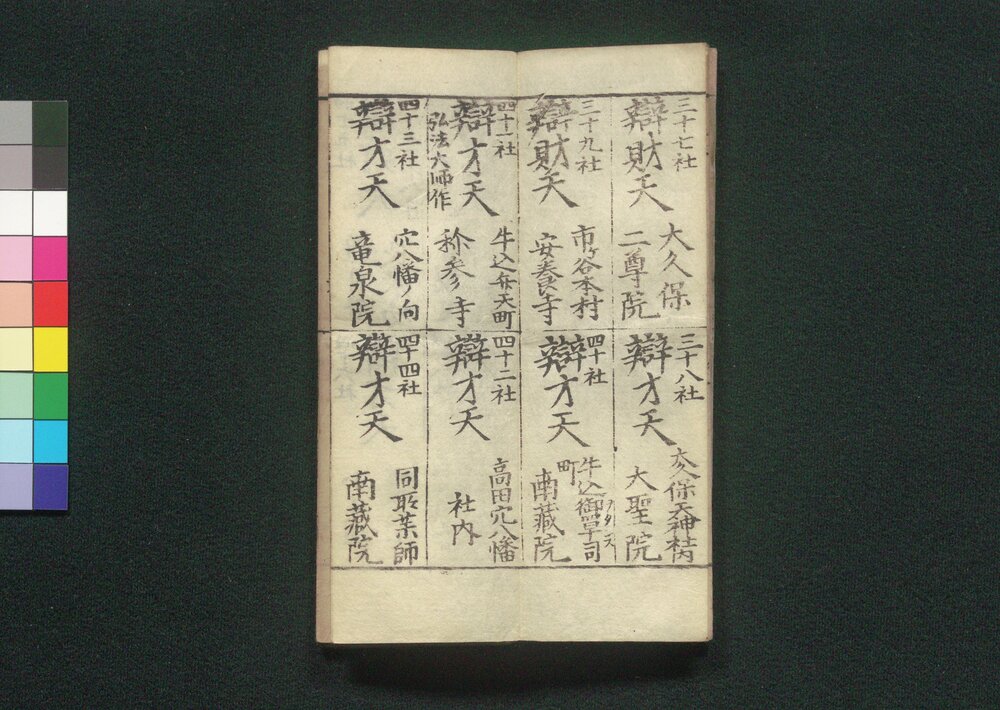 三十七社
辯財天
大久保
二尊院
三十八社
辯才天
大久保天神社内
大聖院
三十九社
辯財天
市ヶ谷本村
安養寺
四十社
辯才天
牛込御箪司
町
南藏院
四十一社
辯才天
弘法大師作
牛込弁天町
四十二社
辯才天
高田穴八幡
社内
四十三社
辯才天
穴八幡ノ向
竜泉院
四十四社
辯才天
同所薬師
南藏院